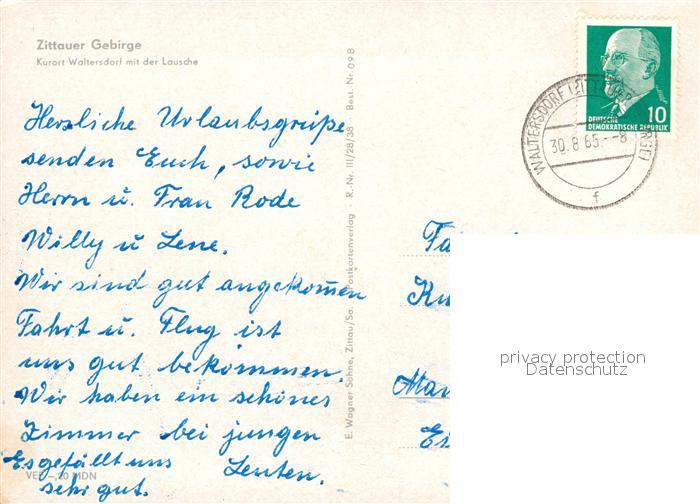 Zittauer Gebirge
Kurort Waltersdorf mit der Lausche
Herzliche Urlaubsgrüße
senden Euch, sowie
Herrn u. Frau Rode
Willy u Lene.
Wir sind gut angekom̄en
Fahrt u. Flug ist
uns gut bekommen
Wir haben ein schönes
Zimmer bei jungen
Leuten.
Es gefällt uns
sehr gut.
VEP -,20 MDN
E. Wagner Söhne, Zittau/Sa. Postkartenverlag R.-Nr. III/28/38 Best. Nr. 09 B
10
DEUTSCHE
DEMOKRATISCHE REPUBLIK
WALTERSDORF (ZITTAUER GEBIRGE)
30.8.65.--8
f
privacy protection
Datenschutz